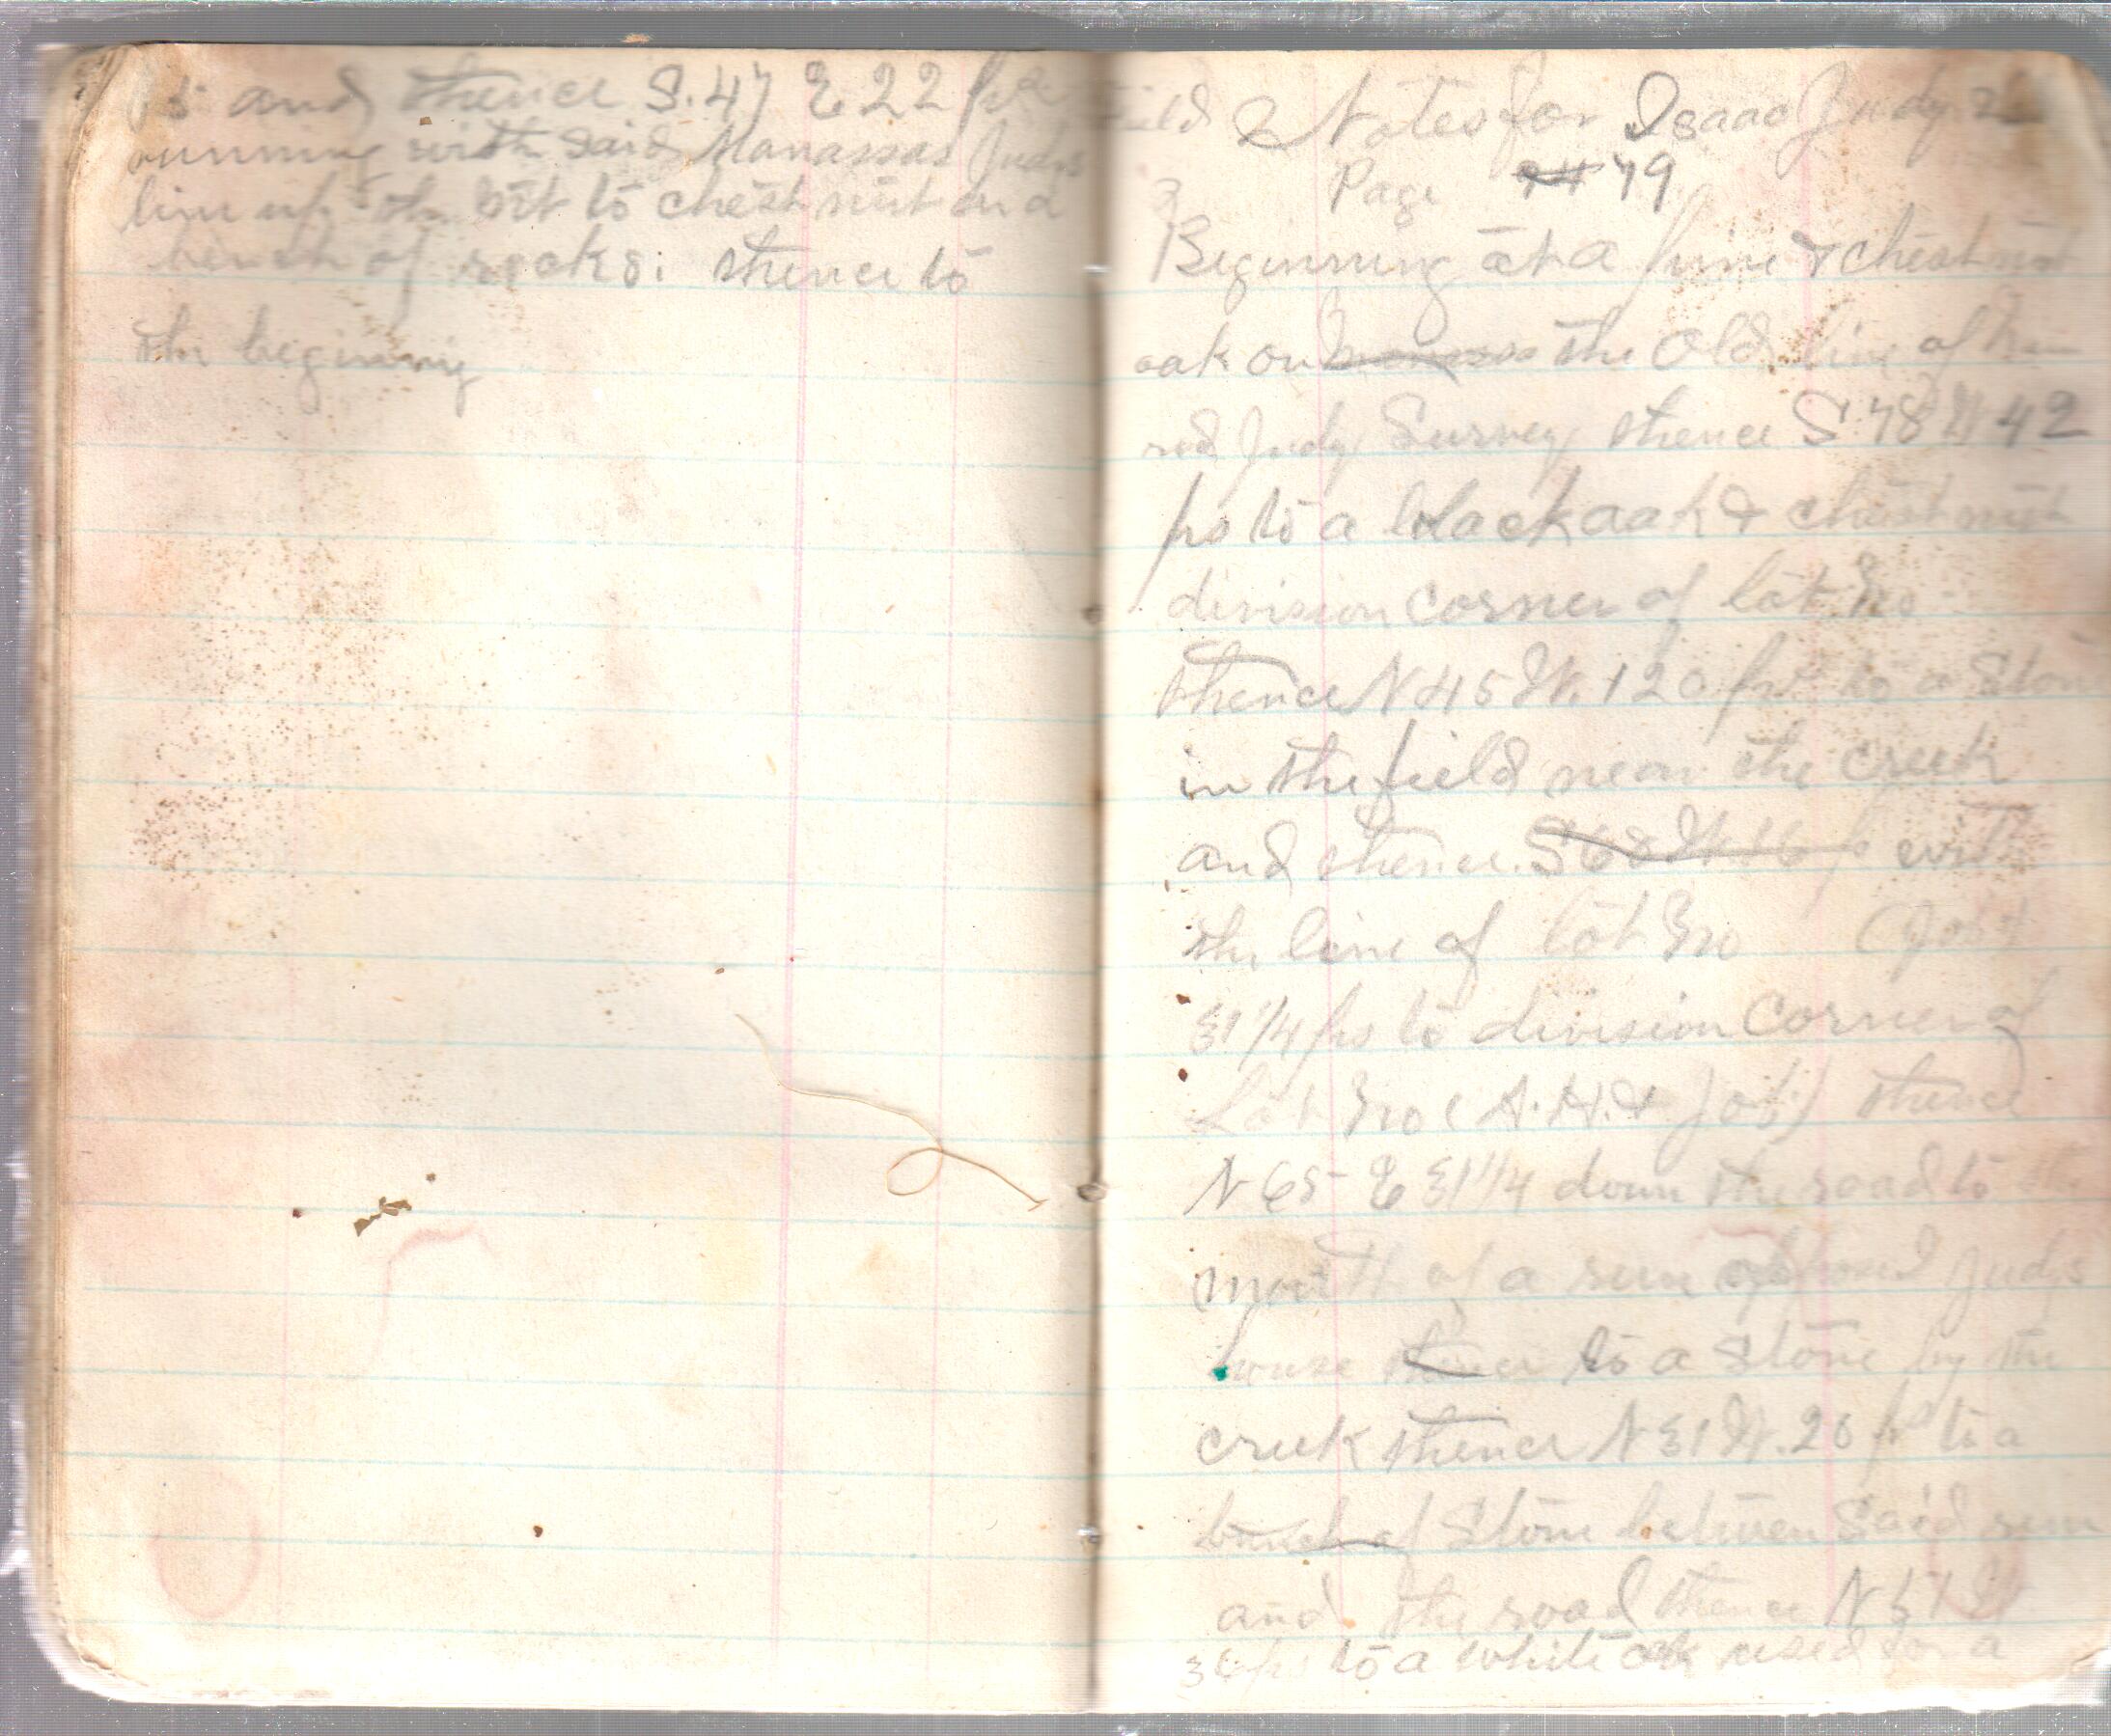 and thence S. 47 E 22 prs
running with said Manassas Judys
line up the to chestnut and a
bench of rocks: thence to
the beginning
Field Notes for Isaac Judy 2
Page 79
Beginning at a pine & chestnut
oak on the Old line of
Judy Survey thence S 78 W 42
ps to a black oak & chestnut
division corner of lot No
thence N 45 W. 120 prs to a Stone
in the field near the creek
and thence S 68 W 16 p with
the line of lot No (Job)
31 1/4 ps to division Corner of
Lot No ( A. H. & Job) thence
N 65 E 31 1/4 down the road to the
mouth of a run Judys
house thence to a Stone by the
creek thence N 31 W. 20 ps to a
bunch of Stone between Said run
and the road thence N W
36 ps to a white oak used for a